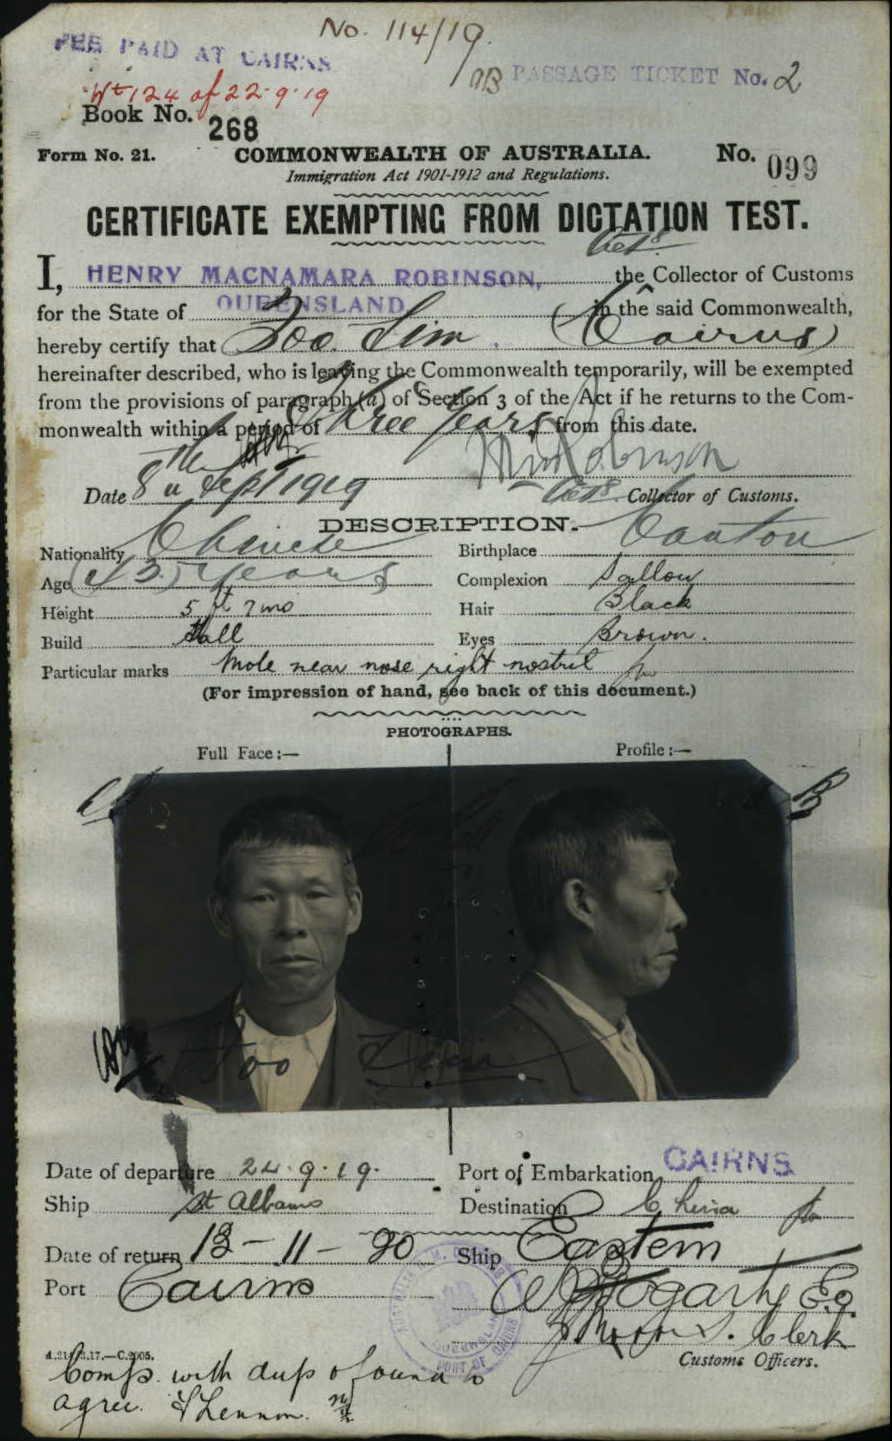 No. 114/19.
FEE PAID AT CAIRNS
PASSAGE TICKET No. 2
124 of 22.9.19
Book No. 268
Form No. 21.
COMMONWEALTH OF AUSTRALIA.
No. 099
Immigration Act 1901-1912 and Regulations.
CERTIFICATE EXEMPTING FROM DICTATION TEST.
I, HENRY MACNAMARA ROBINSON, the Collector of Customs
for the State of QUEENSLAND in the said Commonwealth,
hereby certify that Foo Lim. (Cairns)
hereinafter described, who is leaving the Commonwealth temporarily, will be exempted
from the provisions of paragraph (a) of Section 3 of the Act if he returns to the Com-
monwealth within a period of Three Years from this date.
Date 8th Sept 1919
Collector of Customs.
DESCRIPTION.
Nationality Chinese
Birthplace Canton
Age (43) Years
Complexion Sallow
Height 5 ft 7 ins
Hair Black
Build Tall
Eyes Brown.
Particular marks Mole near nose right nostril
(For impression of hand, see back of this document.)
PHOTOGRAPHS.
Full Face:—
Profile:—
Foo Lim
Date of departure 24.9.19.
Port of Embarkation CAIRNS
Ship St Albans
Destination China
Date of return 13-11-20
Ship Eastern
Port Cairns
Fogarty
Clerk
Customs Officers.
C.2005.
Comp. with dup & found to
agree.
PORT OF CAIRNS